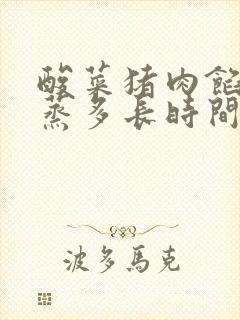 酸菜猪肉餡
蒸多長時間
波多馬克